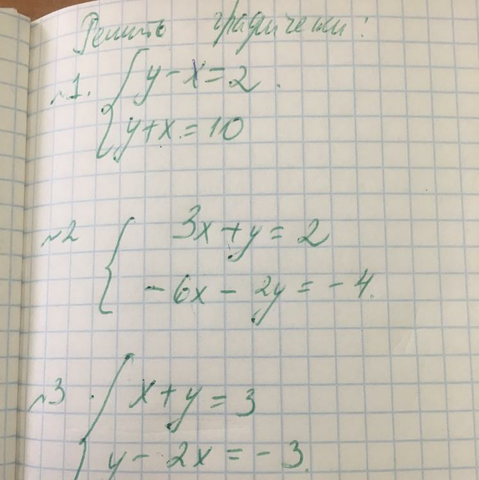 Решить графически:
№1. { y - x = 2.
y + x = 10
№2 { 3x + y = 2
- 6x - 2y = - 4.
№3. { x + y = 3
y - 2x = - 3.